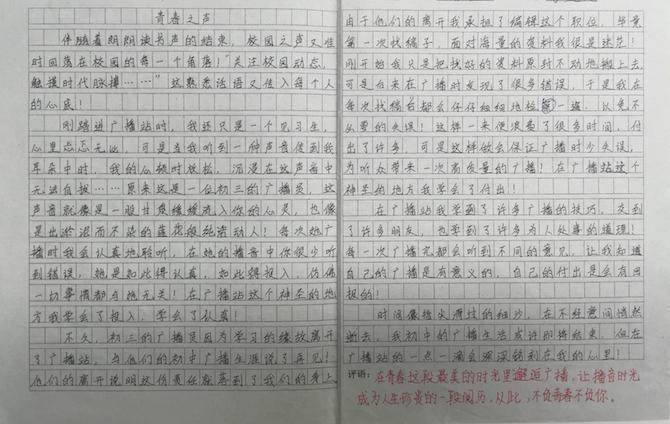 青春之声
伴随着朗朗读书声的结束，校园之声又准
时回荡在校园的每一个角落！“关注校园动态，
触摸时代脉搏……”这熟悉话语又传入每个人
的心底！
刚踏进广播站时，我还只是一个见习生，
心里忐忑无比，可是当我听到一种声音传到我
耳朵中时，我的心顿时放松，沉浸在这声音中
无法自拔……原来这是一位初三的广播员，这
声音就像是一股甘泉缓缓流入你的心灵，也像
是出淤泥而不染的莲花般纯清动人！每次她广
播时我会认真地聆听，在她的播音中你很少听
到错误，她是如此得认真，如此得投入，仿佛
一切事情都与她无关！在广播站这个神圣的地
方我学会了投入，学会了认真！
不久，初三的广播员因为学习的缘故离开
了广播站，与他们的初中广播生涯说了再见！
他们的离开说明这份责任就落到了我们的身上
由于他们的离开我承担了编辑这个职位，毕竟
第一次找稿子，面对海量的资料我很是迷茫！
刚开始我只是把找好的资料原封不动地搬上去
可是后来在广播时发现了很多错误，于是我在
每次找稿后都会仔仔细细地检一遍，以免不
必要的失误！这样一来便浪费了很多时间，付
出了许多，可是这样就会保证广播时少失误，
为听众带来一次高质量的广播！在广播站这个
神圣的地方我学会了付出！
在广播站我学到了许多广播的技巧，交到
了许多朋友，也学到了许多为人处事的道理！
每一次广播完都会听到不同的意见，让我知道
自己的广播是有意义的，自己的付出是会有回
报的！
时间像指尖滑过的细沙，在不经意间悄然
逝去，我初中的广播生活或许即将结束，但在
广播站的一点一滴会深深铭刻在我的心里！
评语：在青春这段最美的时光里邂逅广播，让播音时光
成为人生珍贵的一段阅历，从此，不负青春不负你。